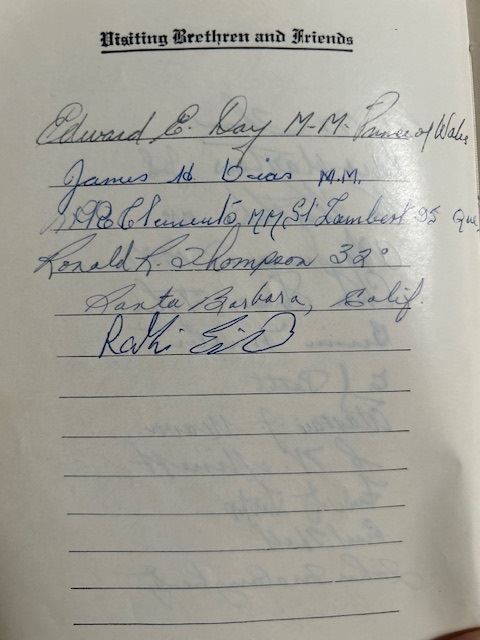 Visiting Brethren and Friends
Edward E. Day M-M- Prince of Wales
James H. Dias M.M.
Clements, MM, St Lambert 95 Que,
Ronald R. Thompson 32°
Santa Barbara, Calif.